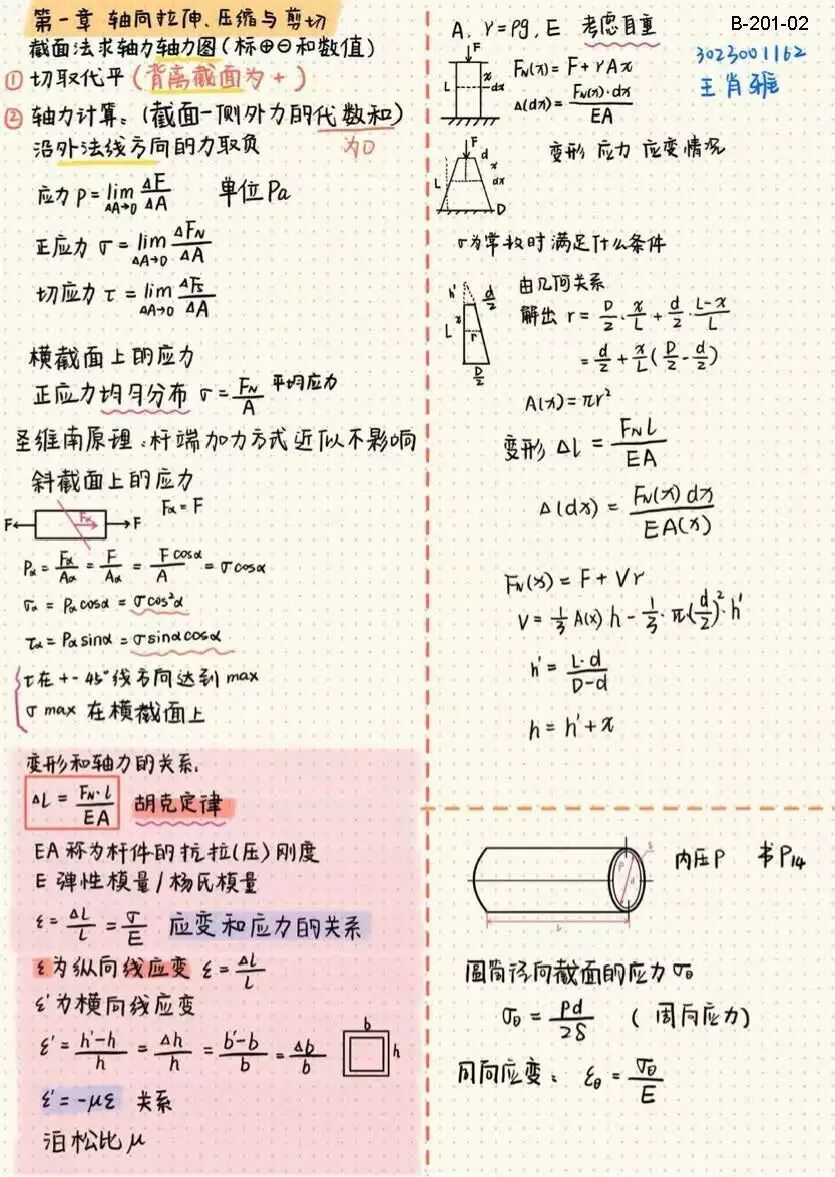 第一章 轴向拉伸、压缩与剪切
截面法求轴力轴力图(标⊕⊖和数值)
① 切取代平(背离截面为+)
② 轴力计算:(截面一侧外力的代数和)
为0
沿外法线方向的力取负
应力 P = lim ΔA→0 ΔF/ΔA 单位 Pa
正应力 σ = lim ΔA→0 ΔF_N/ΔA
切应力 τ = lim ΔA→0 ΔF_s/ΔA
横截面上的应力
正应力均匀分布 σ = F_N/A 平均应力
圣维南原理:杆端加力方式近似不影响
斜截面上的应力
Fα = F
F Fα F
Pα = Fα/Aα = F/Aα = F cosα/A = σcosα
σα = Pα cosα = σcos²α
τα = Pα sinα = σsinαcosα
τ在+-45°线方向达到max
σ max 在横截面上
变形和轴力的关系.
ΔL = F_N·l/EA 胡克定律
EA 称为杆件的抗拉(压)刚度
E 弹性模量/杨氏模量
ε = ΔL/L = σ/E 应变和应力的关系
ε为纵向线应变 ε = ΔL/L
ε'为横向线应变
ε' = h'-h/h = Δh/h = b'-b/b = Δb/b
b
h
ε' = -με 关系
泊松比μ
A, γ=ρg, E 考虑自重
B-201-02
3023001162
王肖雅
F
L x dx
F_N(x) = F + γAx
Δ(dx) = F_N(x)·dx/EA
F d
L x dx
D
变形 应力 应变情况
σ为常数时满足什么条件
h' d/2
x
L r
D/2
由几何关系
解出 r = D/2·x/L + d/2·L-x/L
= d/2 + x/L(D/2 - d/2)
A(x) = πr²
变形 Δl = F_N l/EA
Δ(dx) = F_N(x)dx/EA(x)
F_N(x) = F + Vγ
V = 1/3 A(x) h - 1/3·π(d/2)²·h'
h' = L·d/D-d
h = h' + x
P δ d
L
内压P 书P14
圆筒径向截面的应力σθ
σθ = Pd/2δ (周向应力)
周向应变: εθ = σθ/E